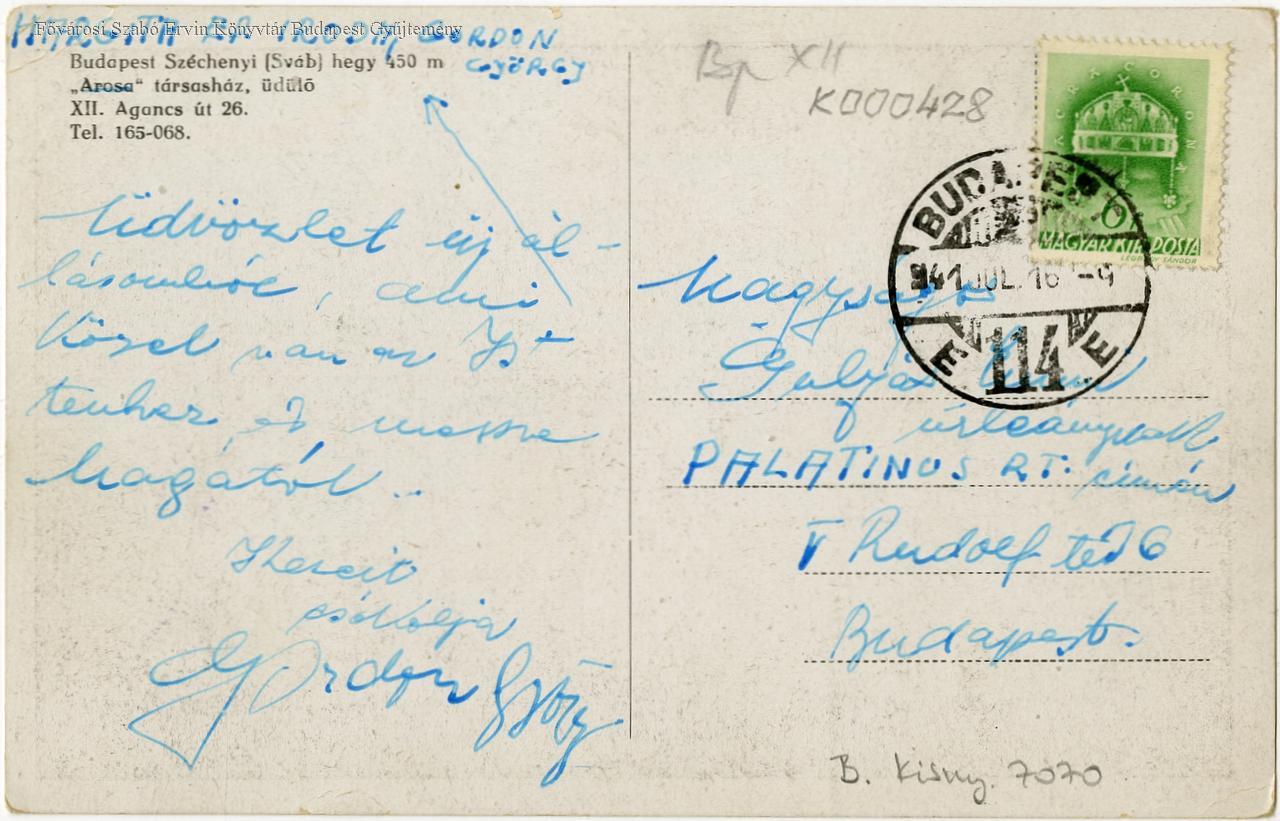 Fővárosi Szabó Ervin Könyvtár Budapest Gyűjtemény
GORDON
GYÖRGY
Budapest Széchenyi (Sváb) hegy 450 m
„Arosa“ társasház, üdülő
XII. Agancs út 26.
Tel. 165-068.
Üdvözlet új ál-
lásomból, ami
közel van az Is-
tenhez és messze
Magától..
Kezeit
csókolja
Gordon György
Bp XII
K000428
6
MAGYAR KIR. POSTA
LÉGRÁDY SÁNDOR
BUDAPEST
941 JUL. 16 -9
E 114 E
Nagyságos
Gulyás
úrleánynak
PALATINUS RT. címén
V Rudolf tér 6
Budapest.
B. Kisny. 7070